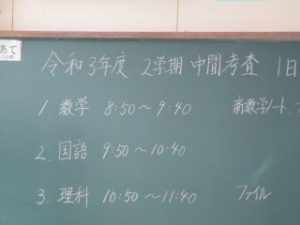 あて
令和3年度 2学期 中間考査 1日
1. 数学 8:50～9:40 新数学ノート
2. 国語 9:50～10:40
3. 理科 10:50～11:40 ファイル